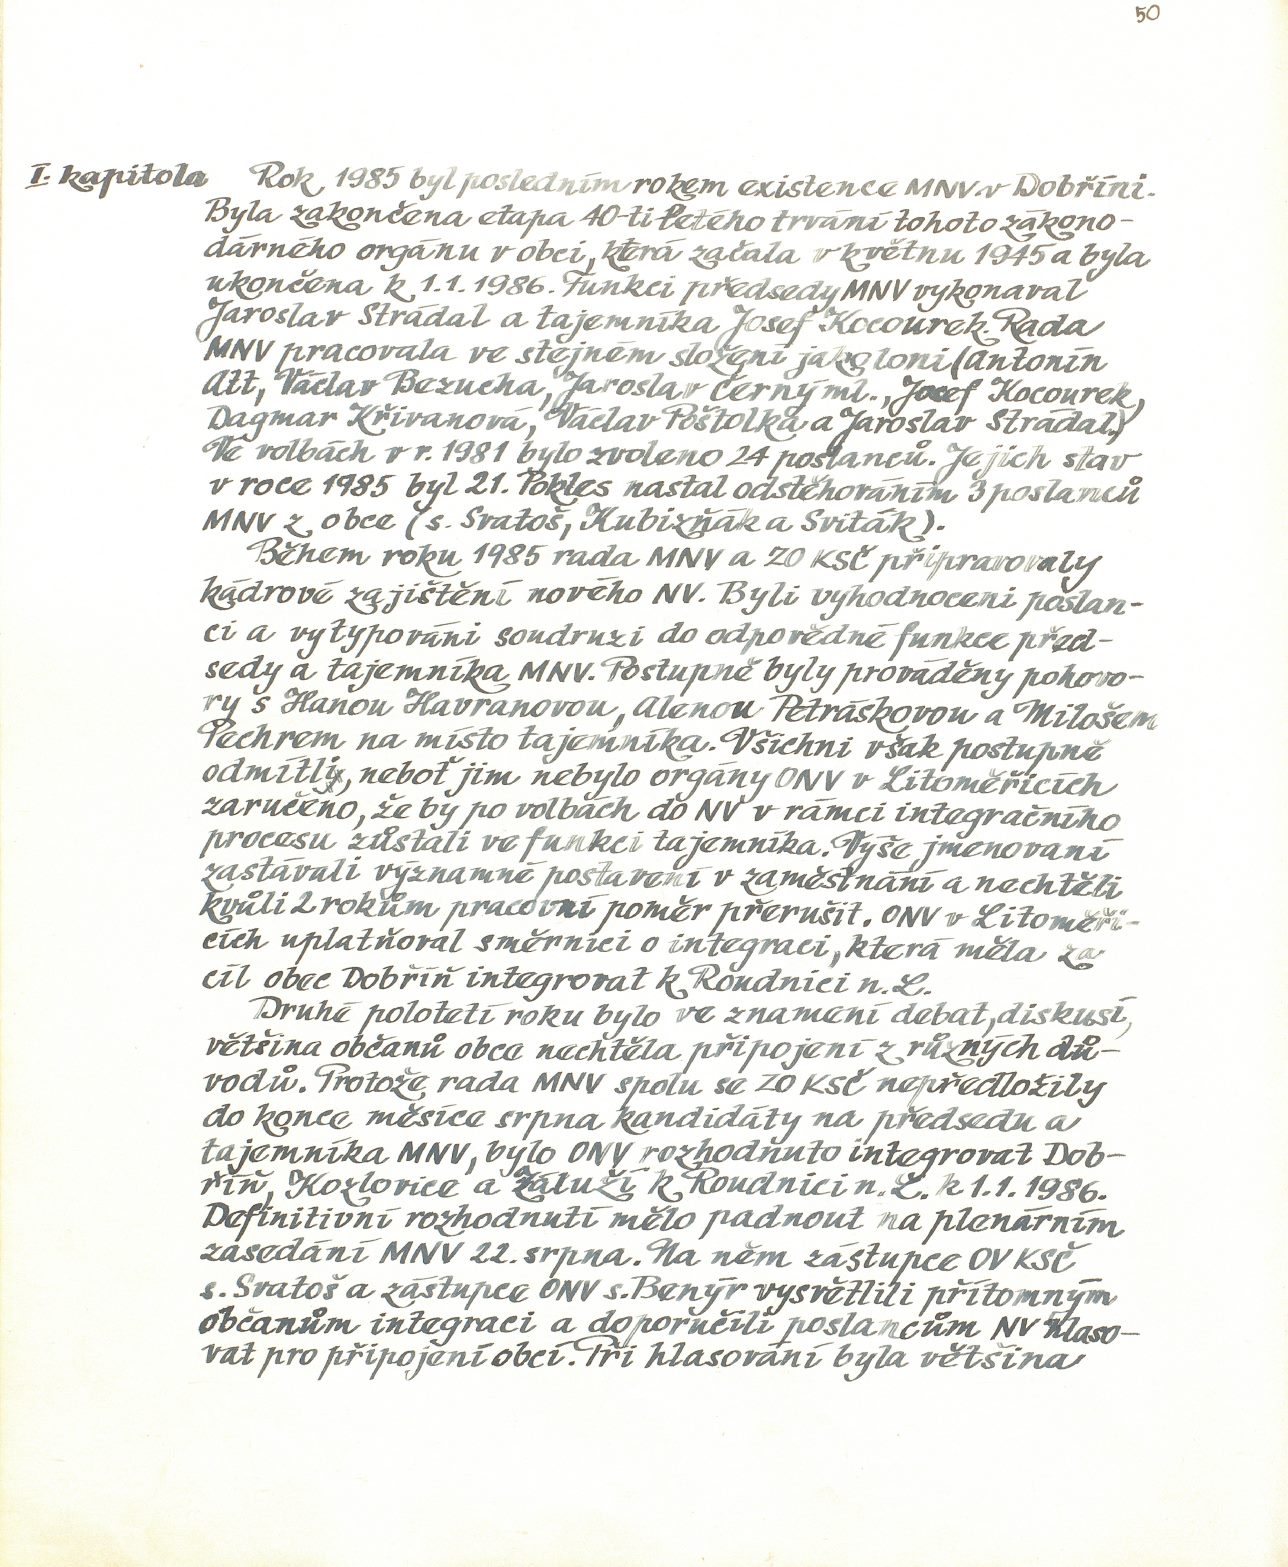 50
I. kapitola Rok 1985 byl posledním rokem existence MNV v Dobříni.
Byla zakončena etapa 40-ti letého trvání tohoto zákono-
dárného orgánu v obci, která začala v květnu 1945 a byla
ukončena k 1.1.1986. Funkci předsedy MNV vykonaval
Jaroslav Strádal a tajemníka Josef Kocourek. Rada
MNV pracovala ve stejném složení jako loni (Antonín
Alt, Václav Bezucha, Jaroslav Černý ml., Josef Kocourek,
Dagmar Křivanová, Václav Poštolka a Jaroslav Strádal.)
Ve volbách v r. 1981 bylo zvoleno 24 poslanců. Jejich stav
v roce 1985 byl 21. Pokles nastal odstěhováním 3 poslanců
MNV z obce (s. Svatoš, Kubizňák a Sviták).
Během roku 1985 rada MNV a ZO KSČ připravovaly
kádrové zajištění nového NV. Byli vyhodnoceni poslan-
ci a vytypováni soudruzi do odpovědné funkce před-
sedy a tajemníka MNV. Postupně byly prováděny pohovo-
ry s Hanou Havranovou, Alenou Petráškovou a Milošem
Pechrem na místo tajemníka. Všichni však postupně
odmítli, neboť jim nebylo orgány ONV v Litoměřicích
zaručeno, že by po volbách do NV v rámci integračního
procesu zůstali ve funkci tajemníka. Výše jmenovaní
zastávali významné postavení v zaměstnání a nechtěli
kvůli 2 rokům pracovní poměr přerušit. ONV v Litoměři-
cích uplatňoval směrnici o integraci, která měla za
cíl obec Dobříň integrovat k Roudnici n. L.
Druhé pololetí roku bylo ve znamení debat, diskusí,
většina občanů obce nechtěla připojení z různých dů-
vodů. Protože rada MNV spolu se ZO KSČ nepředložily
do konce měsíce srpna kandidáty na předsedu a
tajemníka MNV, bylo ONV rozhodnuto integrovat Dob-
říň, Kozlovice a Záluží k Roudnici n. L. k 1.1.1986.
Definitivní rozhodnutí mělo padnout na plenárním
zasedání MNV 22. srpna. Na něm zástupce OV KSČ
s. Svatoš a zástupce ONV s. Benýr vysvětlili přítomným
občanům integraci a doporučili poslancům NV hlaso-
vat pro připojení obcí. Při hlasování byla většina